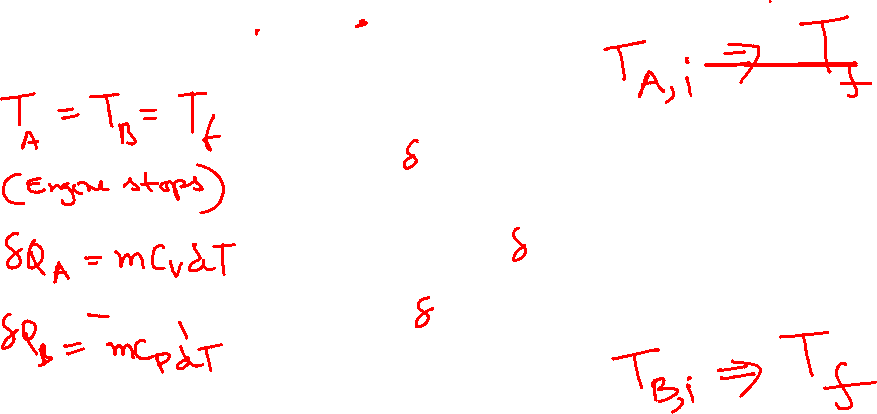 T_{A,i} ⇒ T_f
T_A = T_B = T_f
δ
(Engine stops)
δQ_A = mC_VdT
δ
δ
δQ_B = -mC_PdT
T_{B,i} ⇒ T_f